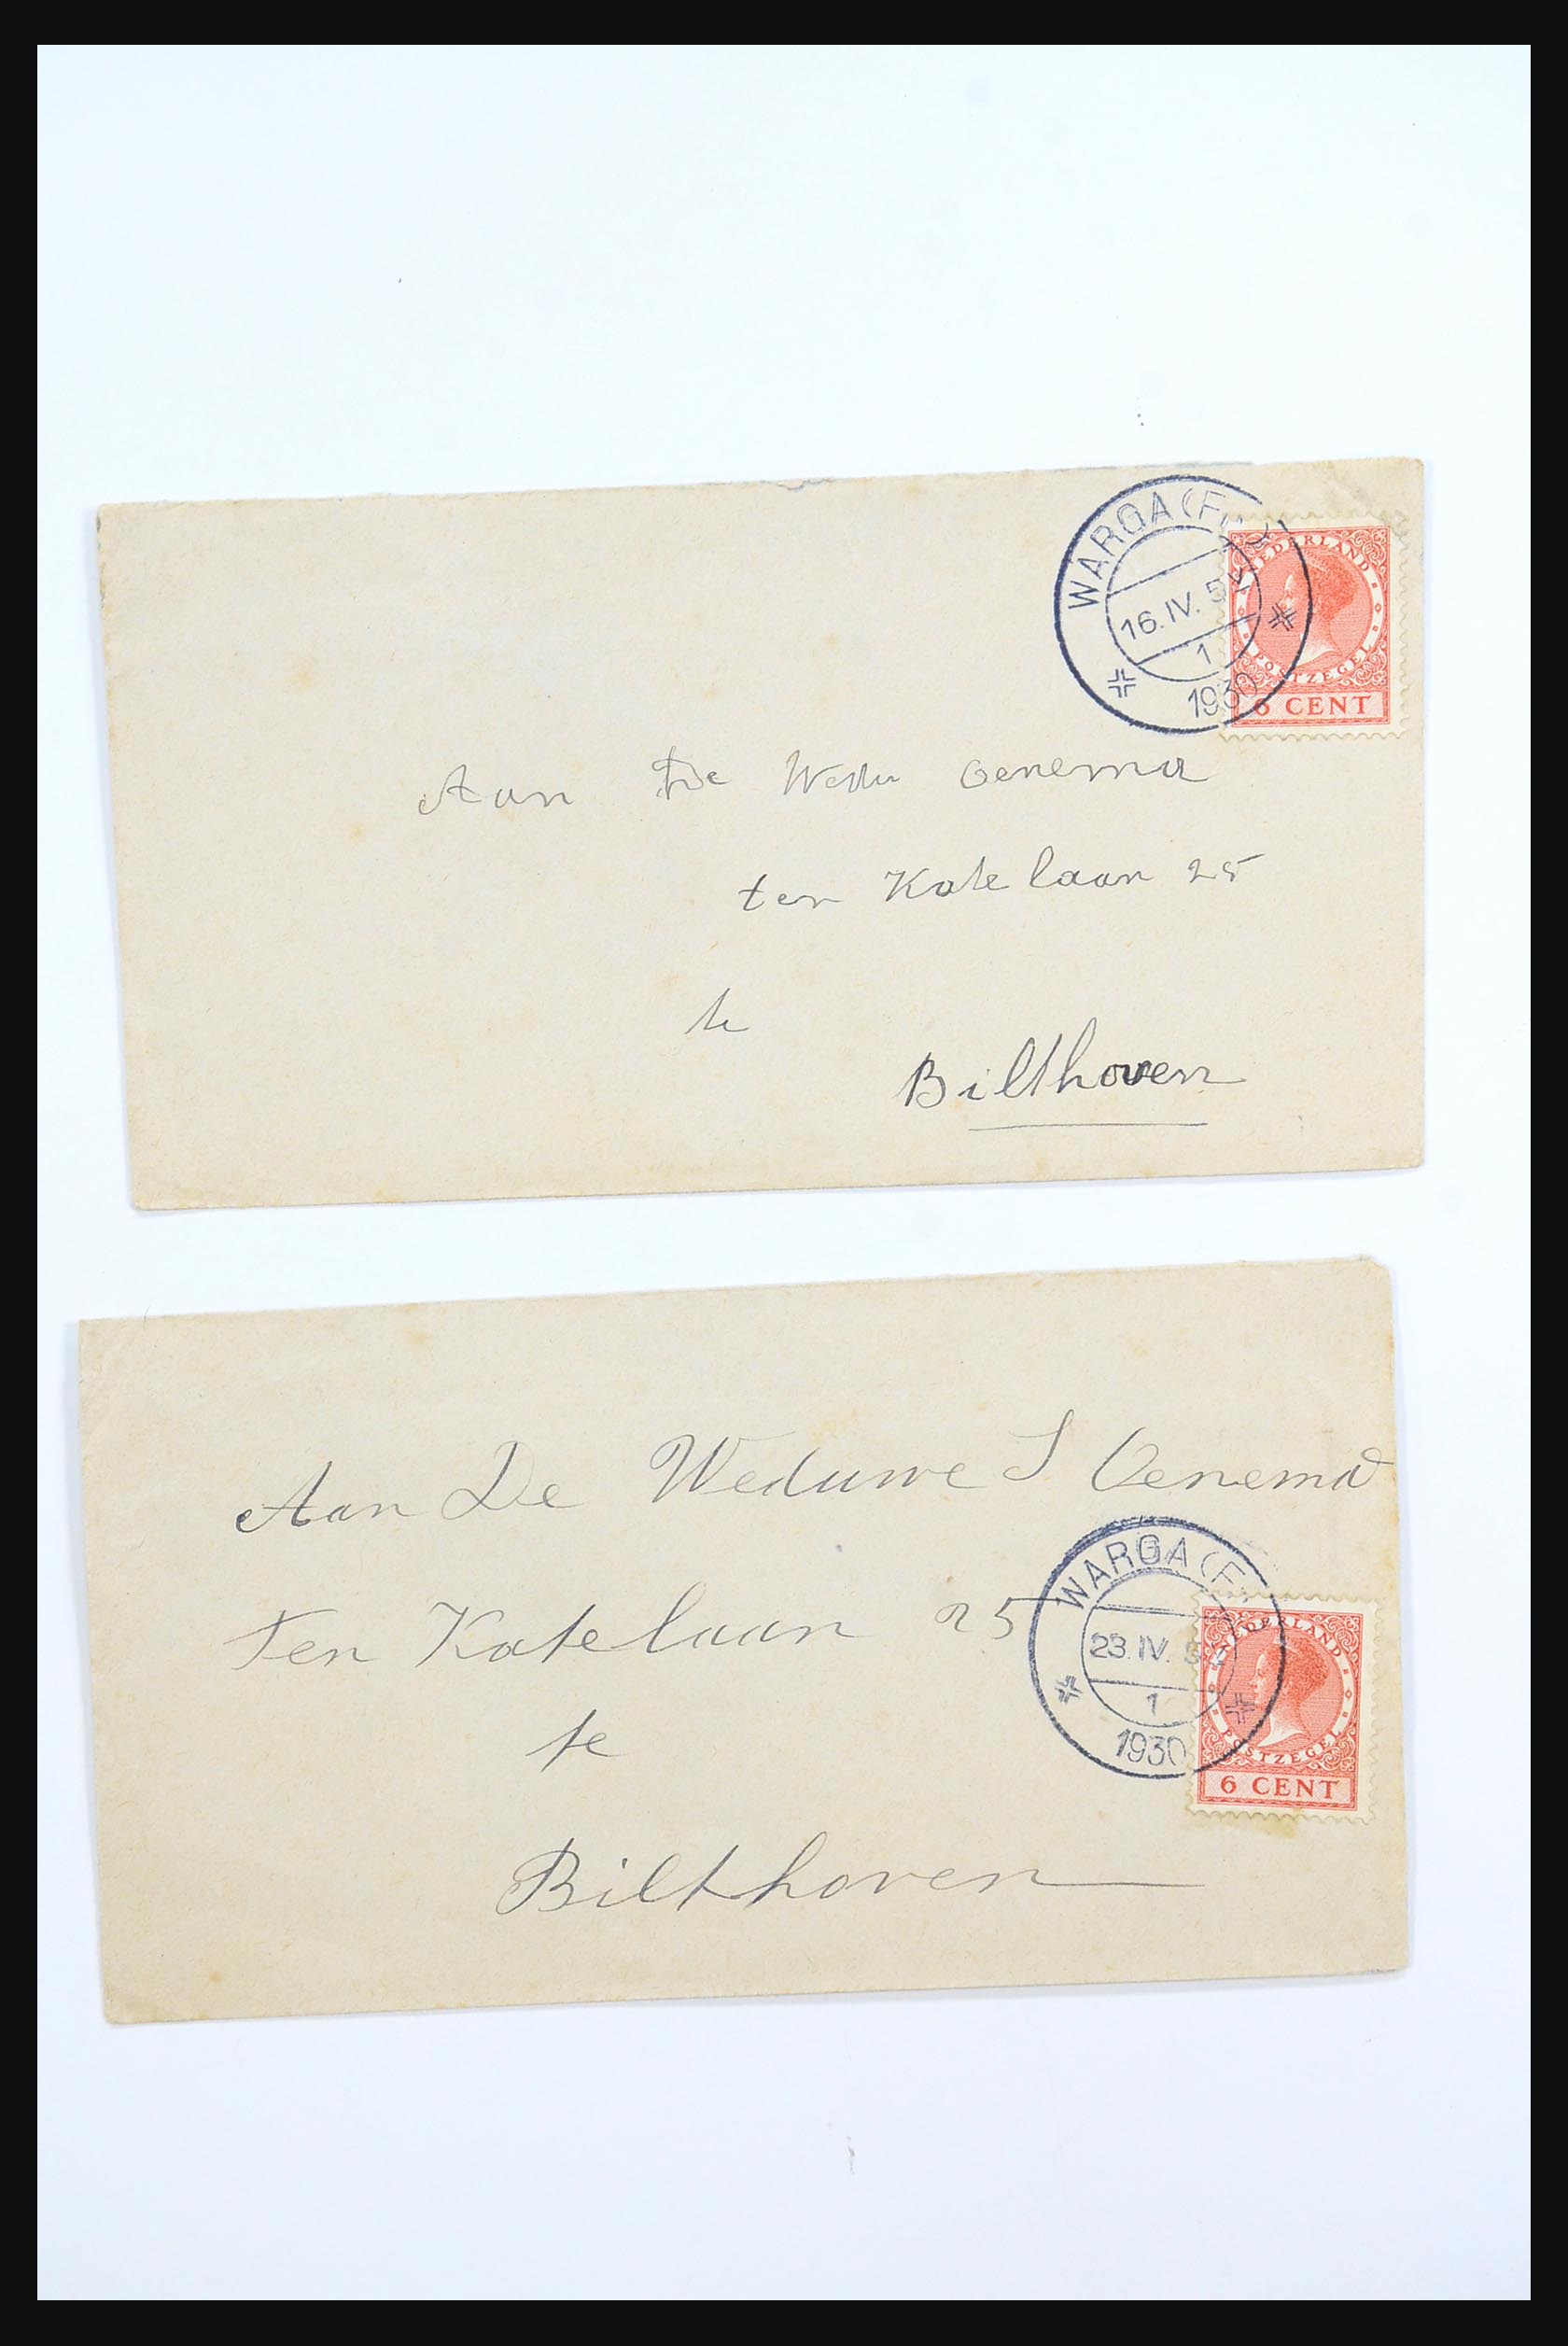 WARGA (Fr.)
16.IV. 5
1
1930
NEDERLAND
POSTZEGEL
6 CENT
Aan De Wedu Oenema
ten Kate laan 25
te
Bilthoven
Aan De Weduwe S Oenema
Ten Kate laan 25
te
Bilthoven
WARGA (F
23.IV.
1
1930
NEDERLAND
POSTZEGEL
6 CENT